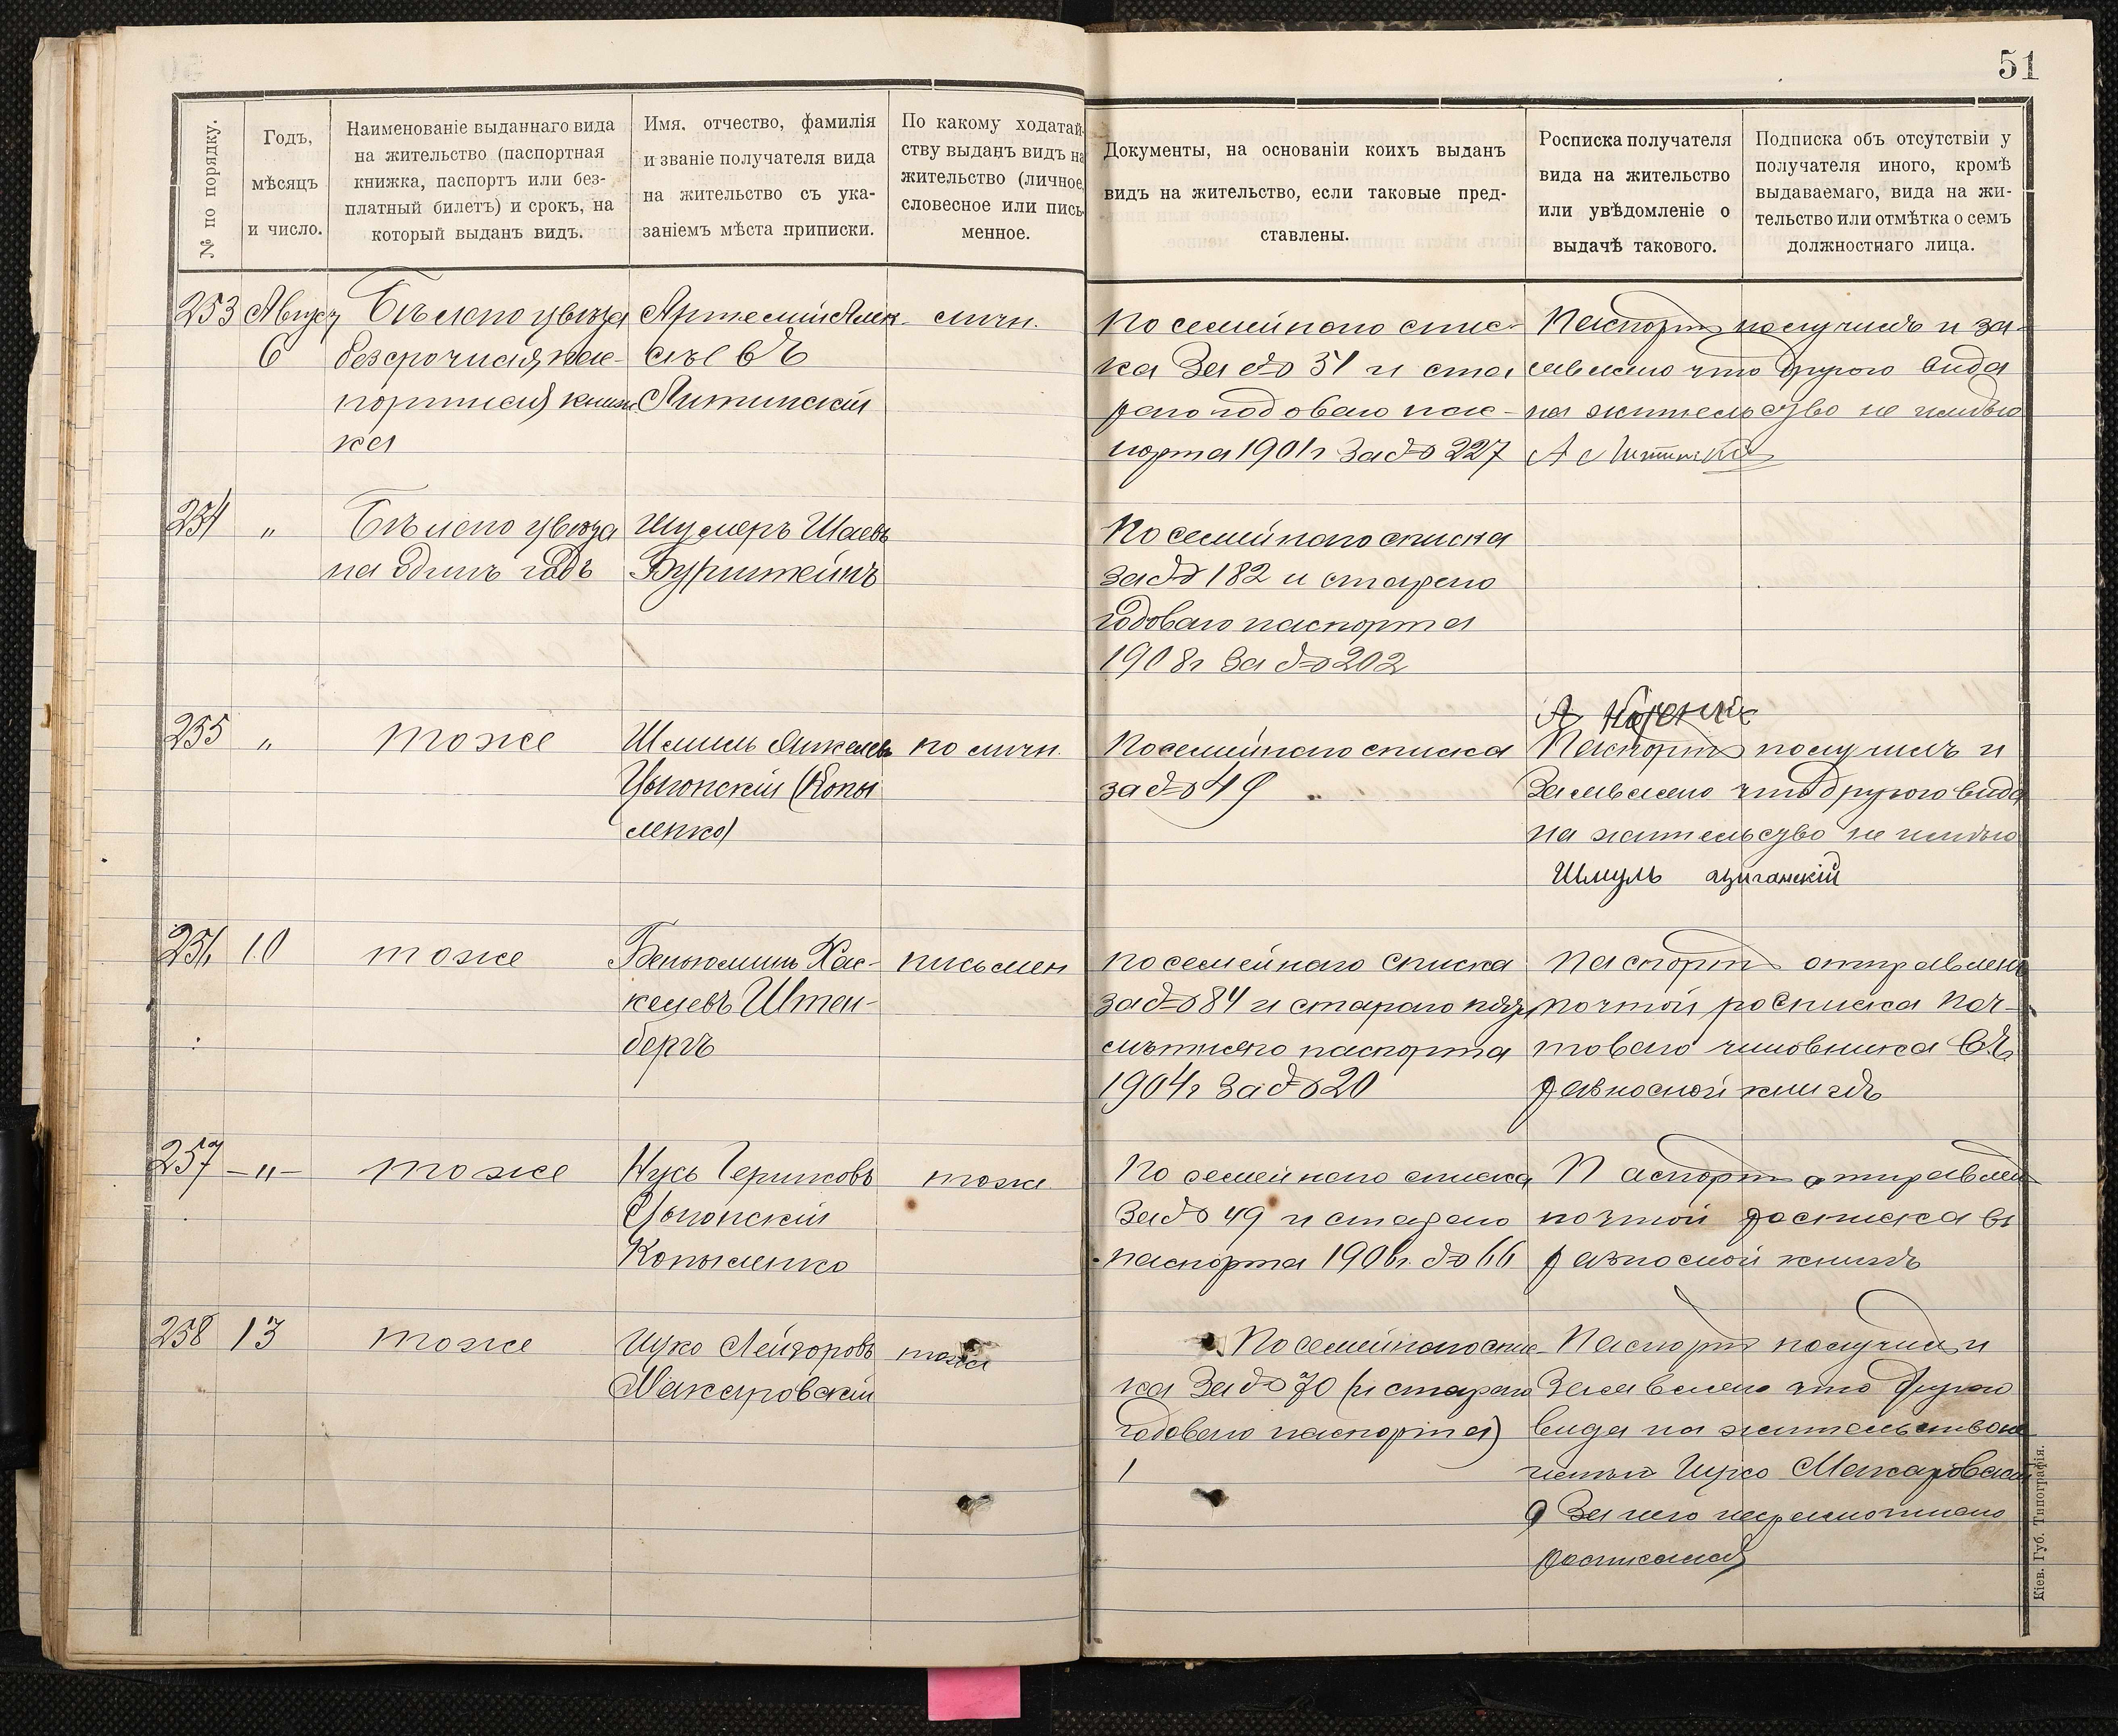 51
№ по порядку.
Годъ,
мѣсяцъ
и число.
Наименованіе выданнаго вида
на жительство (паспортная
книжка, паспортъ или без-
платный билетъ) и срокъ, на
который выданъ видъ.
Имя, отчество, фамилія
и званіе получателя вида
на жительство съ ука-
заніемъ мѣста приписки.
По какому ходатай-
ству выданъ видъ на
жительство (личное,
словесное или пись-
менное.
Документы, на основаніи коихъ выданъ
видъ на жительство, если таковые пред-
ставлены.
Росписка получателя
вида на жительство
или увѣдомленіе о
выдачѣ такового.
Подписка объ отсутствіи у
получателя иного, кромѣ
выдаваемаго, вида на жи-
тельство или отмѣтка о семъ
должностнаго лица.
253
Август
6
безсрочная пас-
портная книж
ка
Артемій Алек-
сѣевъ
Литинскій
личн.
По семейного спис-
ка За № 31 и ста
раго годоваго пас-
порта 1901г За № 227
Паспортъ получилъ и за-
являю что другого вида
на жительство не имѣю
254
"
на одинъ годъ
Шулеръ Шаевъ
Бурштейнъ
По семейного списка
за № 182 и стараго
годоваго паспорта
1908г За № 202
255
"
тоже
Шмиль Янкелевъ
Цыгонскій (Копы
ленко)
по личн.
По семейного списка
за № 49
Паспортъ получилъ и
Заявляю что другого вида
на жительство не имѣю
Шмуль цыганскій
256
10
тоже
Беньюминъ Хас-
келевъ Штен-
бергъ
письмен
по семейнаго списка
за № 84 и стараго пяти
лѣтняго паспорта
1904г За № 20
Паспортъ отправленъ
почтой росписка поч-
товаго чиновника въ
разносной книгѣ
257
— " —
тоже
Нусь Гершковъ
Цыгонскій
Копыленко
тоже
По семейного списка
За № 49 и стараго
паспорта 1906г. № 66
Паспортъ отправлен
почтой росписка въ
разносной книгѣ
258
13
тоже
Ицко Лейзоровъ
Макаровскій
тоже
По семейного спис-
ка За № 70 (и стараго
годоваго паспорта)
Паспортъ получилъ и
Заявляю что другого
вида на жительство не
имѣю Ицко Макаровскій
а За него неграмотного
росписался
Кіев. Губ. Типографія.